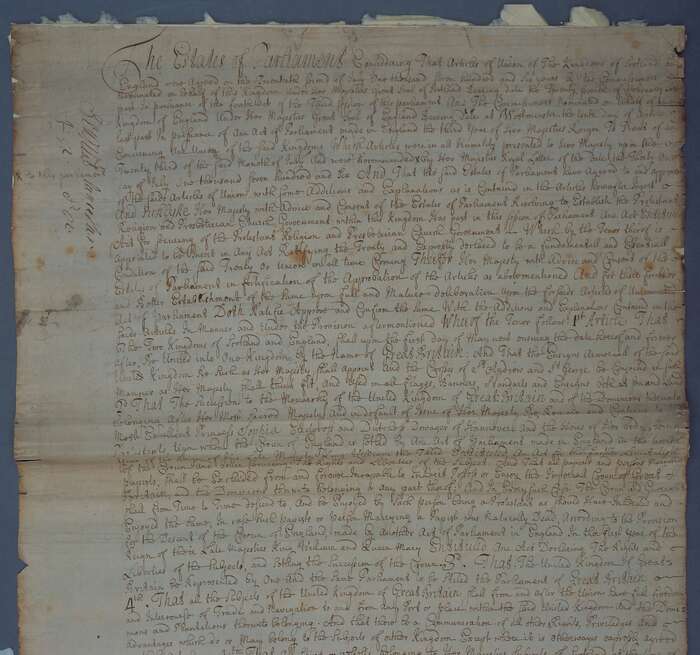 The Estates of Parliament Considering That Articles of Union of The Kingdoms of Scotland and
England were Agreed on the Twentie second of July One thousand seven hundred and six years By the Commissioners
nominated on behalf of this Kingdom under Her Majesties Great Seal of Scotland Bearing date the Twenty seventh of February
past In pursuance of the fourth Act of the Third Session of this parliament And The Commissioners nominated on behalf of the
Kingdom of England Under Her Majesties Great Seal of England Bearing date at Westminster the tenth day of Aprile
last past In pursuance of An Act of Parliament made in England the third Year of Her Majesties Reign To Treat of and
Concerning An Union of the said Kingdoms Which Articles were in all humility presented to Her Majesty upon the
Twenty third of the said Month of July And were Recommended by Her Majesties Royal Letter of the Date the Thirty One
day of July One thousand seven hundred and six And That the said Estates of Parliament have Agreed to and approven
of the saids Articles of Union with some Additions and Explanations as is Contained in the Articles hereafter Insert
And Sicklyke Her Majesty with Advice and Consent of the Estates of Parliament Resolving to Establish the Protestant
Religion and Presbyterian Church Government within this Kingdom Has past in this Session of Parliament An Act Entituled
Act for Securing of the Protestant Religion and Presbyterian Church Government Which by the Tenor thereof is
appointed to be Insert in Any Act Ratifying the Treaty and Expresly declared to be a fundamental and Essential
Condition of the said Treaty or Union in all time Coming Therefor Her Majesty with Advice and Consent of the
Estates of Parliament in fortification of the Approbation of the Articles as abovementioned And for their further
and Better Establishment of the same upon full and Mature deliberation upon the forsaids Articles of Union and
Act of Parliament Doth Ratifie Approve and Confirm the same With the Additions and Explanations Contained in the
saids Articles In Manner and Under the Provision aftermentioned Whereof the Tenor follows 1st Article That
the Two Kingdoms of Scotland and England, shall upon the first day of May next ensuing the date hereof, and forever
after, Be United into One Kingdom By the Name of Great Britain. And That the Ensigns Armorial of the said
United Kingdom Be such as Her Majesty shall Appoint And the Crosses of St Andrew and St George be Conjoined in such
Manner as Her Majesty shall think fit, And Used in all Flags, Banners, Standards and Ensigns both at Sea and Land
2d That The Succession to the Monarchy of the United Kingdom of Great Britain and of the Dominions thereunto
Belonging After Her Most Sacred Majesty And in default of Issue of Her Majesty Be, Remain and Continue to the
Most Excellent Princess Sophia Electoress and Dutchess Dowager of Hannover And the Heirs of Her Body, being
Protestants Upon whom the Crown of England is settled By An Act of Parliament made in England in the twelfth
year of the Reign of His late Majesty King William the Third Entituled An Act for the further Limitation
of the Crown and Better securing The Rights and Liberties of the Subject And That all papists and persons marrying
papists, shall be Excluded from and forever Incapable to Inherit Possess or Enjoy the Imperial Crown of Great
Britain, and the Dominions thereunto Belonging or any part thereof And in Every such Case The Crown and Government
shall From Time to Time descend to And be Enjoyed by such person being a Protestant as should have Inherited and
Enjoyed the Same, In case such Papist or person Marrying a Papist was Naturally Dead, According to the Provision
for the Descent of the Crown of England, made by Another Act of Parliament in England In the first Year of the
Reign of their Late Majesties King William and Queen Mary Entituled An Act Declaring The Rights and
Liberties of the Subject, and Settling the Succession of the Crown 3d. That The United Kingdom of Great
Britain be Represented by One And the same Parliament to be stiled the Parliament of Great Britain
4th. That all the Subjects of the United Kingdom of Great Britain shall from and after the Union have full freedom
and Intercourse of Trade and Navigation to and from Any port or place within the said United Kingdom And the Domi-
nions and Plantations thereunto belonging. And that there be a Communication of all other Rights, Priviledges and
advantages which do or May belong to the Subjects of either Kingdom Except where it is otherwayes expresly agreed